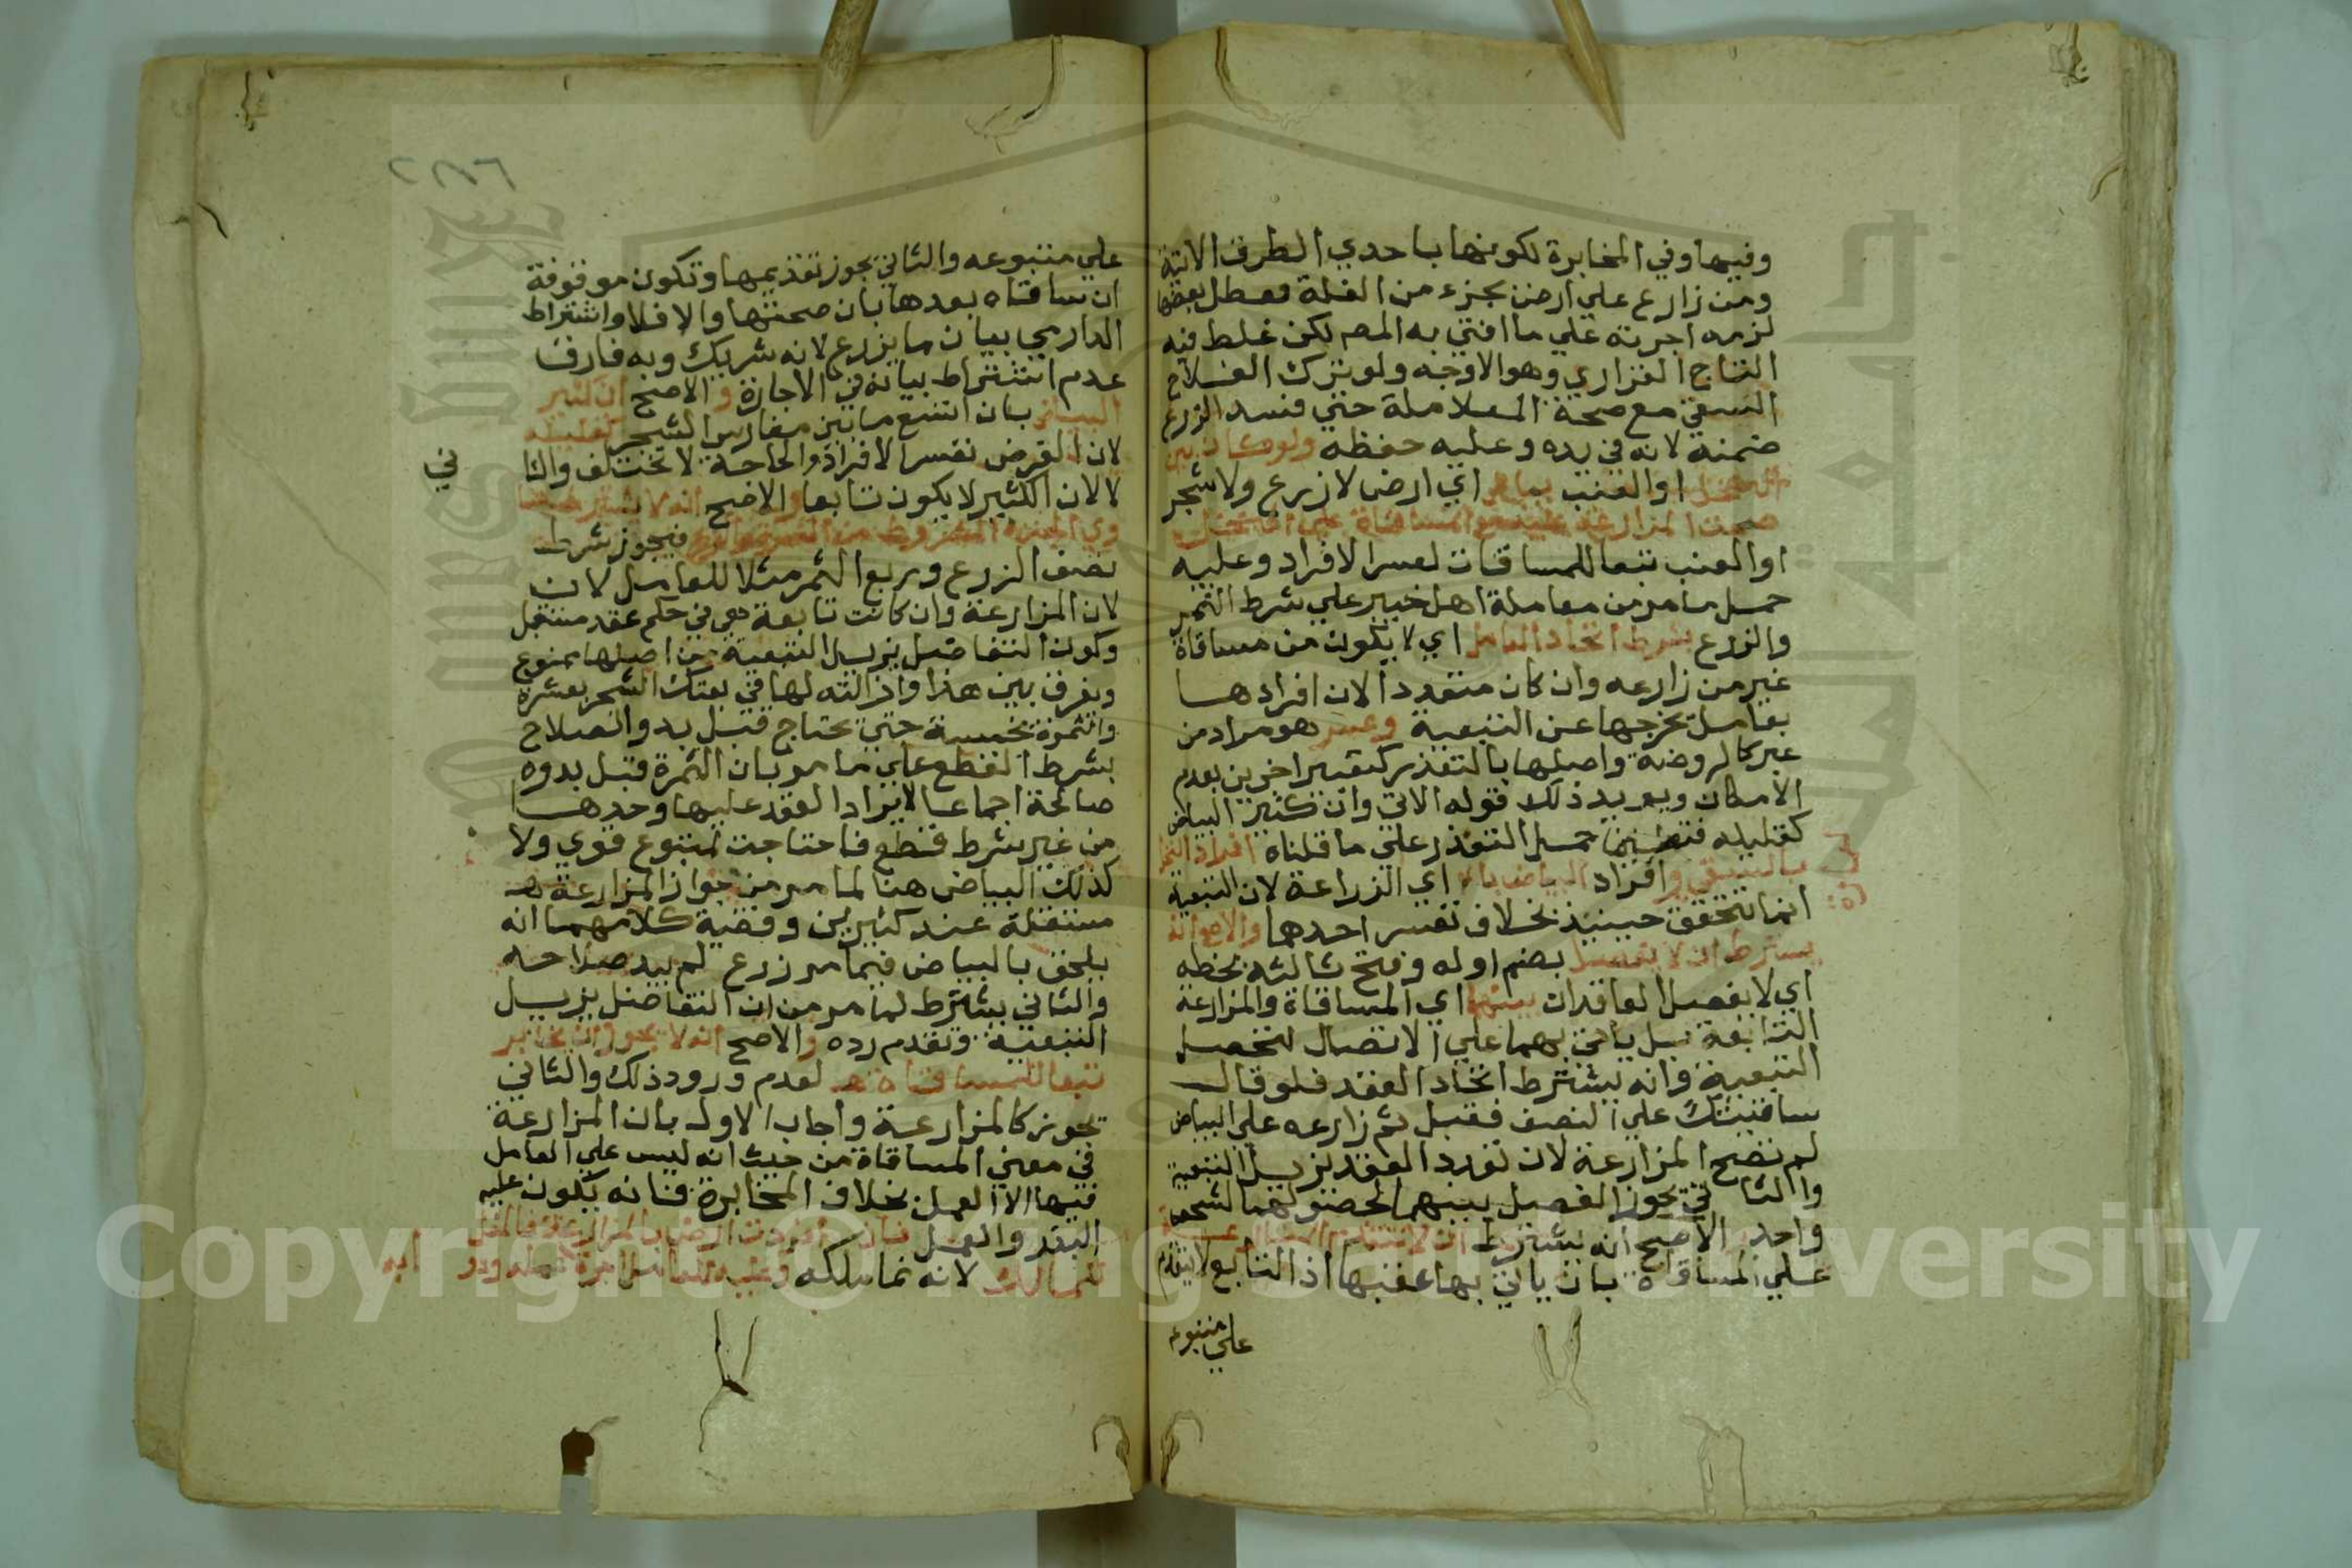 وفيها وفي المخابرة لكونها باحدي الطرق الاتية
ومن زارع علي ارض بجزء من الغلة فعطل بعضها
لزمه اجرته علي ما افتي به المصم لكن غلط فيه
التاج الفزاري وهو الاوجه ولو ترك الفلاح
السقي مع صحة المعاملة حتي فسد الزرع
ضمنه لانه في يده وعليه حفظه ولو كان بين
النخل او العنب بياض اي ارض لا زرع ولا شجر
صحت المزارعة عليه مع المساقاة علي النخل
او العنب تبعا للمساقات لعسر الافراد وعليه
حمل ما مر من معاملة اهل خيبر علي شرط الثمر
والزرع بشرط اتحاد العامل اي لا يكون من مساقاة
غير من زارعه وان كان متعددا لان افرادها
بعامل يخرجها عن التبعية وعسر هو مراد من
عبر كالروضة واصلها بالتعذر كتعبير اخرين بعدم
الامكان ويويد ذلك قوله الاتي وان كثير البياض
كقليله فتعين حمل التعذر علي ما قلناه افراد النخل
بالسقي وافراد البياض اي الزراعة لان التبعية
انما تتحقق حينيذ بخلاف تعسر احدهما والاصح انه
يشترط ان لا يفصل بضم اوله وفتح ثالثه بخطه
اي لا يفصل العاقدان بينهما اي المساقاة والمزارعة
التابعة بل ياتي بهما علي الاتصال لتحصل
التبعية وانه يشترط اتحاد العقد فلو قال
ساقيتك علي النصف فقبل ثم زارعه علي البياض
لم تصح المزارعة لان تعدد العقد يزيل التبعية
والثاني يجوز الفصل بينهما لحصولهما لشخص
واحد والاصح انه يشترط ان لا تتقدم المزارعة
علي المساقاة بان ياتي بها عقبها اذ التابع لا يتقدم
علي متبوعه
٢٨٦
علي متبوعه والثاني يجوز تقديمها وتكون موقوفة
ان ساقاه بعدها بان صحتها والا فلا واشتراط
الدارمي بيان ما يزرع لانه شريك وبه فارق
عدم اشتراط بيانه في الاجارة والاصح ان كثير
البياض بان اتسع ما بين مغارس الشجر كقليله
لان الغرض تعسر الافراد والحاجة لا تختلف والثا
ني
لا لان الكثير لا يكون تابعا والاصح انه لا يشترط
تساوي الجزء المشروط من الثمر والزرع فيجوز شرط
نصف الزرع وربع الثمر مثلا للعامل لان
لان المزارعة وان كانت تابعة هي في حكم عقد مستقل
وكون التفاضل يزيل التبعية من اصلها ممنوع
ويفرق بين هذا وازالته لها في بعتك الشجر بعشرة
والثمرة بخمسة حتي يحتاج قبل بدو الصلاح
بشرط القطع علي ما مر بان الثمرة قبل بدوه
صالحة اجماعا لايراد العقد عليها وحدها
من غير شرط قطع فاحتاجت لمتبوع قوي ولا
كذلك البياض هنا لما مر من جواز المزارعة
مستقلة عند كثيرين وقضية كلامهما انه
يلحق بالبياض فيما مر زرع لم يبد صلاحه
والثاني يشترط لما مر من ان التفاضل يزيل
التبعية وتقدم رده والاصح انه لا يجوز ان يخابر
تبعا للمساقاة لعدم ورود ذلك والثاني
تجوز كالمزارعة واجاب الاول بان المزارعة
في معني المساقاة من حيث انه ليس علي العامل
فيها الا العمل بخلاف المخابرة فانه يكون عليه
البذر والعمل فان افردت ارض بالمزارعة فالمغل
للمالك لانه نما ملكه وعليه للعامل اجرة عمله ودو ابه
Copyright © King Saud University